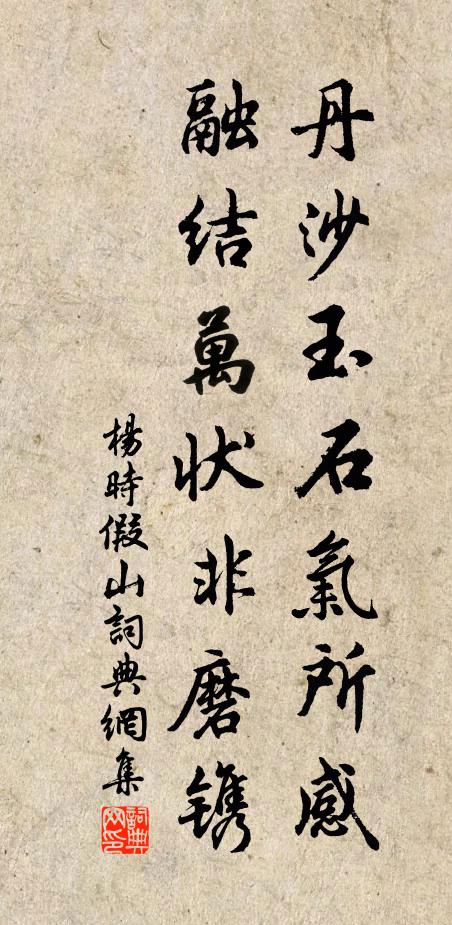 丹沙玉石氣所感
融結萬狀非磨鐫
楊時假山詞典網集
詞典网印